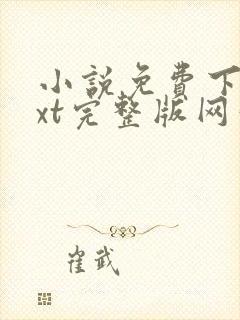 小説免費下
xt完整版网
崔武